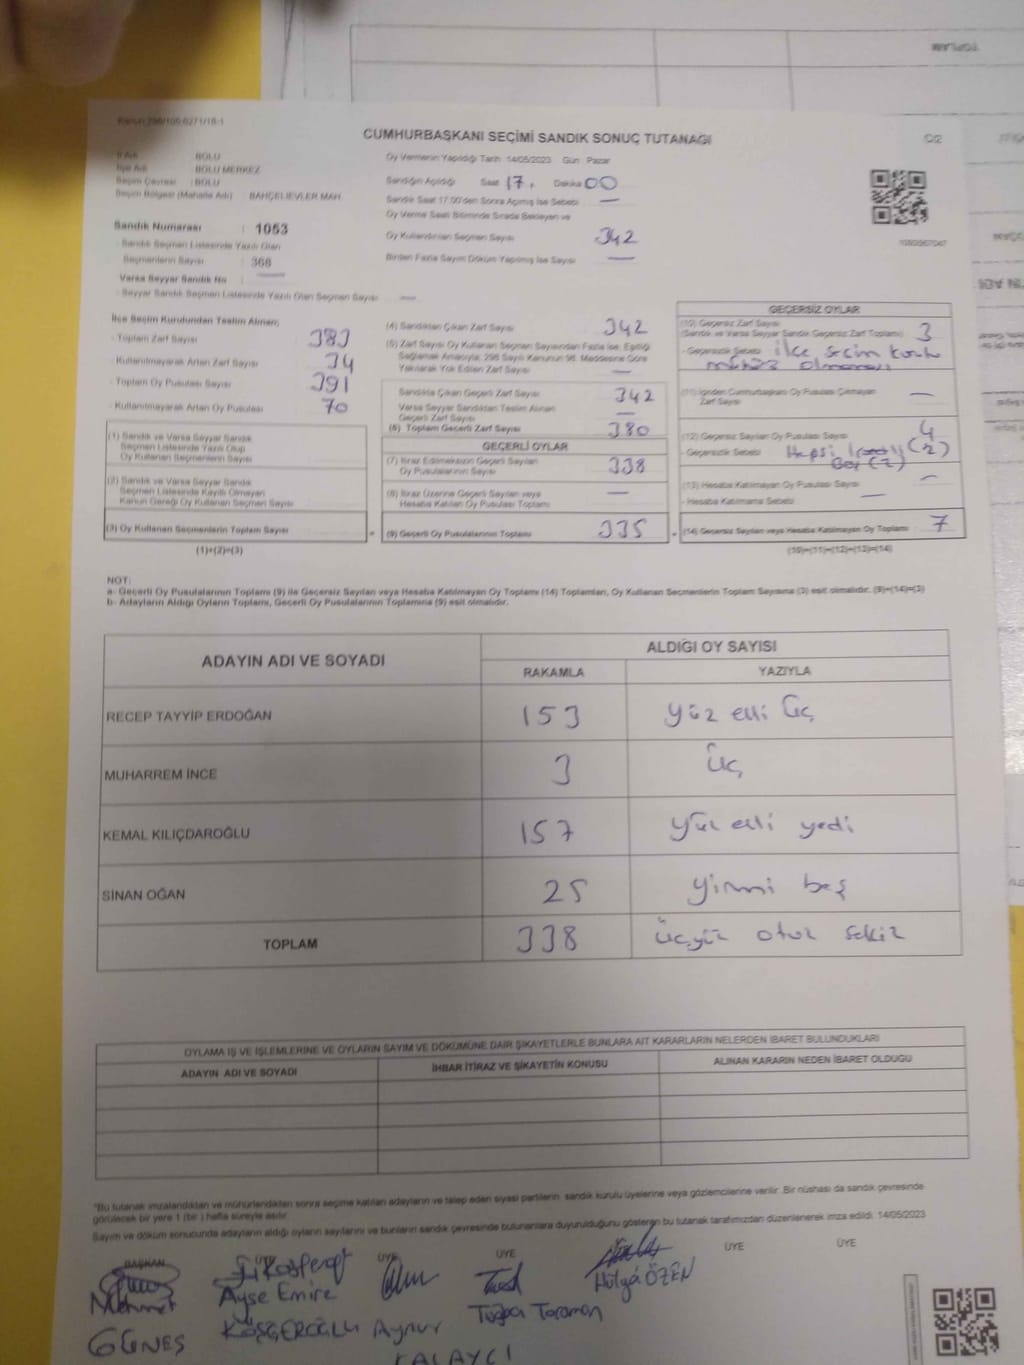 CUMHURBAŞKANI SEÇİMİ SANDIK SONUÇ TUTANAĞI
C/2
İl Adı : BOLU
İlçe Adı : BOLU MERKEZ
Seçim Çevresi : BOLU
Seçim Bölgesi (Mahalle Adı) : BAHÇELİEVLER MAH.
Sandık Numarası : 1053
- Sandık Seçmen Listesinde Yazılı Olan
Seçmenlerin Sayısı : 368
Varsa Seyyar Sandık No : —
- Seyyar Sandık Seçmen Listesinde Yazılı Olan Seçmen Sayısı —
Oy Vermenin Yapıldığı Tarih 14/05/2023 Gün Pazar
Sandığın Açıldığı Saat 17. Dakika 00
Sandık Saat 17.00'den Sonra Açılmış İse Sebebi —
Oy Verme Saati Bitiminde Sırada Bekleyen ve
Oy Kullandırılan Seçmen Sayısı 342
Birden Fazla Sayım Döküm Yapılmış İse Sayısı —
İlçe Seçim Kurulundan Teslim Alınan;
- Toplam Zarf Sayısı 383
- Kullanılmayarak Artan Zarf Sayısı 34
- Toplam Oy Pusulası Sayısı 391
- Kullanılmayarak Artan Oy Pusulası 70
(1) Sandık ve Varsa Seyyar Sandık
Seçmen Listesinde Yazılı Olup
Oy Kullanan Seçmenlerin Sayısı
(2) Sandık ve Varsa Seyyar Sandık
Seçmen Listesinde Kayıtlı Olmayan
Kanun Gereği Oy Kullanan Seçmen Sayısı
(3) Oy Kullanan Seçmenlerin Toplam Sayısı
(1)+(2)=(3)
(4) Sandıktan Çıkan Zarf Sayısı 342
(5) Zarf Sayısı Oy Kullanan Seçmen Sayısından Fazla İse, Eşitliği
Sağlamak Amacıyla, 298 Sayılı Kanunun 98. Maddesine Göre
Yakılarak Yok Edilen Zarf Sayısı —
Sandıkta Çıkan Geçerli Zarf Sayısı 342
Varsa Seyyar Sandıktan Teslim Alınan
Geçerli Zarf Sayısı —
(6) Toplam Geçerli Zarf Sayısı 380
GEÇERLİ OYLAR
(7) İtiraz Edilmeksizin Geçerli Sayılan
Oy Pusulalarının Sayısı 338
(8) İtiraz Üzerine Geçerli Sayılan veya
Hesaba Katılan Oy Pusulası Toplamı —
(9) Geçerli Oy Pusulalarının Toplamı 335
GEÇERSİZ OYLAR
(10) Geçersiz Zarf Sayısı
(Sandık ve Varsa Seyyar Sandık Geçersiz Zarf Toplamı) 3
- Geçersizlik Sebebi : ilçe seçim kurulu
mührü olmaması
(11) İçinden Cumhurbaşkanı Oy Pusulası Çıkmayan
Zarf Sayısı —
(12) Geçersiz Sayılan Oy Pusulası Sayısı 4
Geçersizlik Sebebi : Hepsi (2)
Boş (2)
(13) Hesaba Katılmayan Oy Pusulası Sayısı —
- Hesaba Katılmama Sebebi —
(14) Geçersiz Sayılan veya Hesaba Katılmayan Oy Toplamı 7
(10)+(11)+(12)+(13)=(14)
NOT:
a- Geçerli Oy Pusulalarının Toplamı (9) ile Geçersiz Sayılan veya Hesaba Katılmayan Oy Toplamı (14) Toplamları, Oy Kullanan Seçmenlerin Toplam Sayısına (3) eşit olmalıdır. (9)+(14)=(3)
b- Adayların Aldığı Oyların Toplamı, Geçerli Oy Pusulalarının Toplamına (9) eşit olmalıdır.
ADAYIN ADI VE SOYADI
ALDIĞI OY SAYISI
RAKAMLA YAZIYLA
RECEP TAYYİP ERDOĞAN 153 yüz elli üç
MUHARREM İNCE 3 üç
KEMAL KILIÇDAROĞLU 157 yüz elli yedi
SİNAN OĞAN 25 yirmi beş
TOPLAM 338 üçyüz otuz sekiz
OYLAMA İŞ VE İŞLEMLERİNE VE OYLARIN SAYIM VE DÖKÜMÜNE DAİR ŞİKAYETLERLE BUNLARA AİT KARARLARIN NELERDEN İBARET BULUNDUKLARI
ADAYIN ADI VE SOYADI İHBAR İTİRAZ VE ŞİKAYETİN KONUSU ALINAN KARARIN NEDEN İBARET OLDUĞU
"Bu tutanak imzalandıktan ve mühürlendikten sonra seçime katılan adayların ve talep eden siyasi partilerin sandık kurulu üyelerine veya gözlemcilerine verilir. Bir nüshası da sandık çevresinde
görülecek bir yere 1 (bir) hafta süreyle asılır.
Sayım ve döküm sonucunda adayların aldığı oyların sayılarını ve bunların sandık çevresinde bulunanlara duyurulduğunu gösteren bu tutanak tarafımızdan düzenlenerek imza edildi. 14/05/2023
BAŞKAN ÜYE ÜYE ÜYE ÜYE ÜYE
Mehmet Ayşe Emire Hülya ÖZEN
GÜNEŞ KÖŞGEROĞLU Aynur Tuğba Taraman
KALAYCI